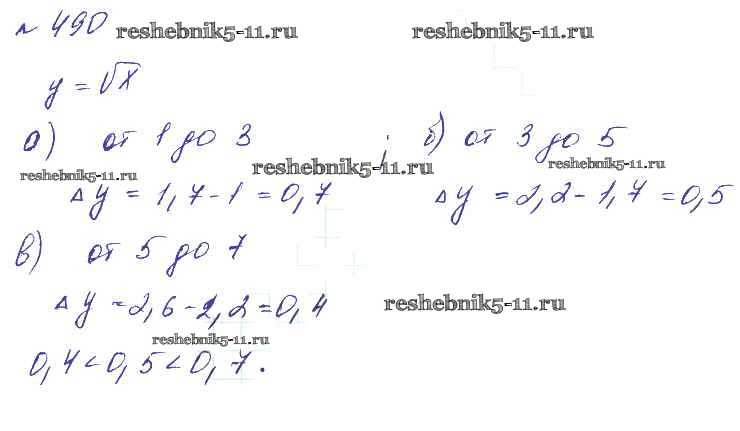 № 490 reshebnik5-11.ru reshebnik5-11.ru
y = √x
а) от 1 до 3 ; б) от 3 до 5
reshebnik5-11.ru reshebnik5-11.ru reshebnik5-11.ru
Δy = 1,7-1 = 0,7 Δy = 2,2-1,7 = 0,5
в) от 5 до 7
Δy = 2,6-2,2 = 0,4 reshebnik5-11.ru
reshebnik5-11.ru
0,4 < 0,5 < 0,7.